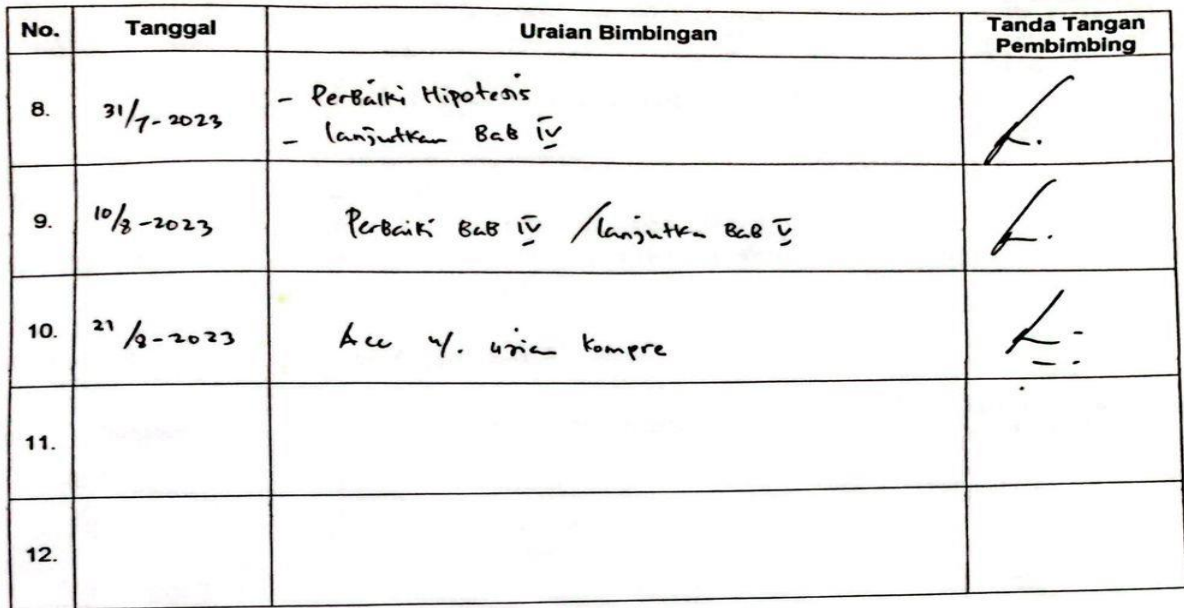 No. Tanggal Uraian Bimbingan Tanda Tangan
Pembimbing
8. 31/7-2023 - Perbaiki Hipotesis
- lanjutkan Bab IV
9. 10/8-2023 Perbaiki Bab IV /lanjutkan Bab V
10. 21/8-2023 Acc u/. ujian kompre
11.
12.